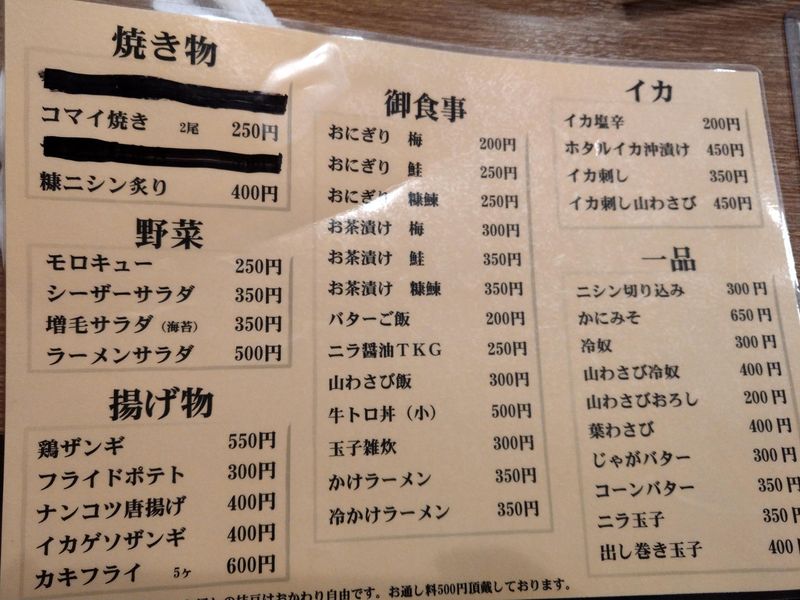 焼き物
コマイ焼き 2尾 250円
糠ニシン炙り 400円
野菜
モロキュー 250円
シーザーサラダ 350円
増毛サラダ（海苔） 350円
ラーメンサラダ 500円
揚げ物
鶏ザンギ 550円
フライドポテト 300円
ナンコツ唐揚げ 400円
イカゲソザンギ 400円
カキフライ 5ヶ 600円
御食事
おにぎり 梅 200円
おにぎり 鮭 250円
おにぎり 糠鰊 250円
お茶漬け 梅 300円
お茶漬け 鮭 350円
お茶漬け 糠鰊 350円
バターご飯 200円
ニラ醤油ＴＫＧ 250円
山わさび飯 300円
牛トロ丼（小） 500円
玉子雑炊 300円
かけラーメン 350円
冷かけラーメン 350円
イカ
イカ塩辛 200円
ホタルイカ沖漬け 450円
イカ刺し 350円
イカ刺し山わさび 450円
一品
ニシン切り込み 300円
かにみそ 650円
冷奴 300円
山わさび冷奴 400円
山わさびおろし 200円
葉わさび 400円
じゃがバター 300円
コーンバター 350円
ニラ玉子 350円
出し巻き玉子 400円
の枝豆はおかわり自由です。お通し料500円頂戴しております。